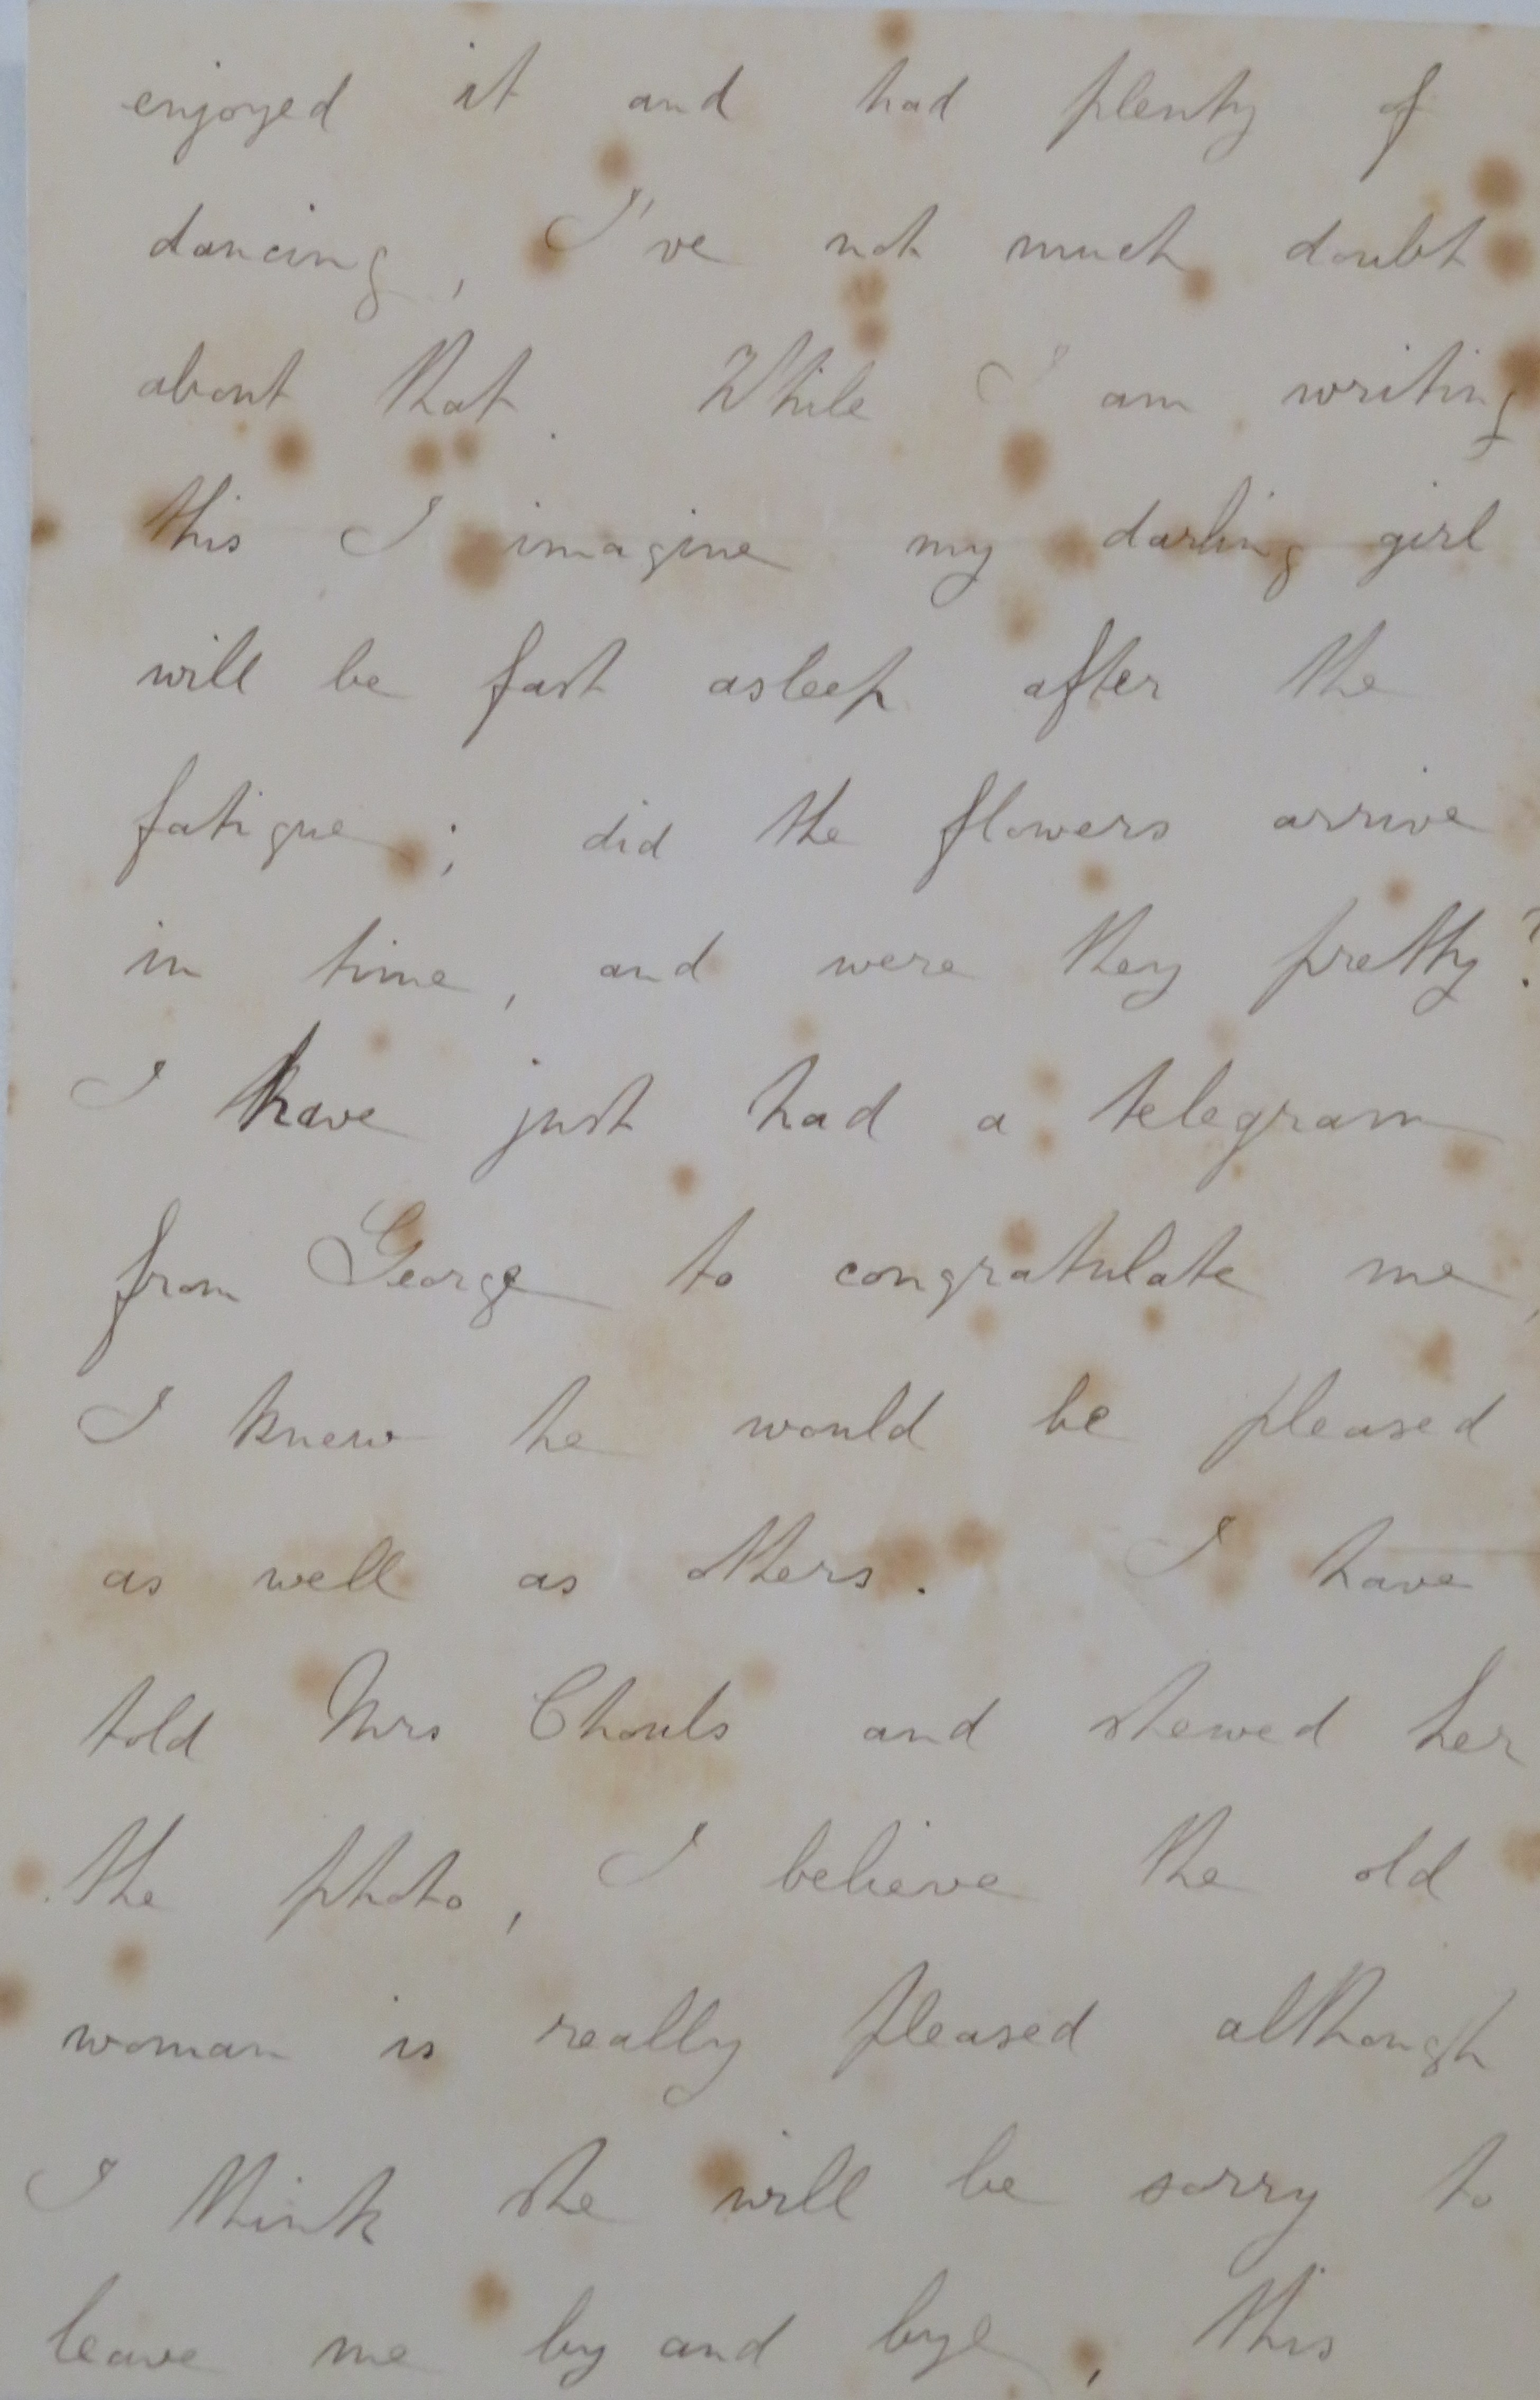 enjoyed it and had plenty of
dancing, I've not much doubt
about that. While I am writing
this I imagine my darling girl
will be fast asleep after the
fatigue; did the flowers arrive
in time, and were they pretty?
I have just had a telegram
from George to congratulate me,
I knew he would be pleased
as well as others. I have
told Mrs and shewed her
the photo, I believe the old
woman is really pleased although
I think she will be sorry to
leave me by and bye, this